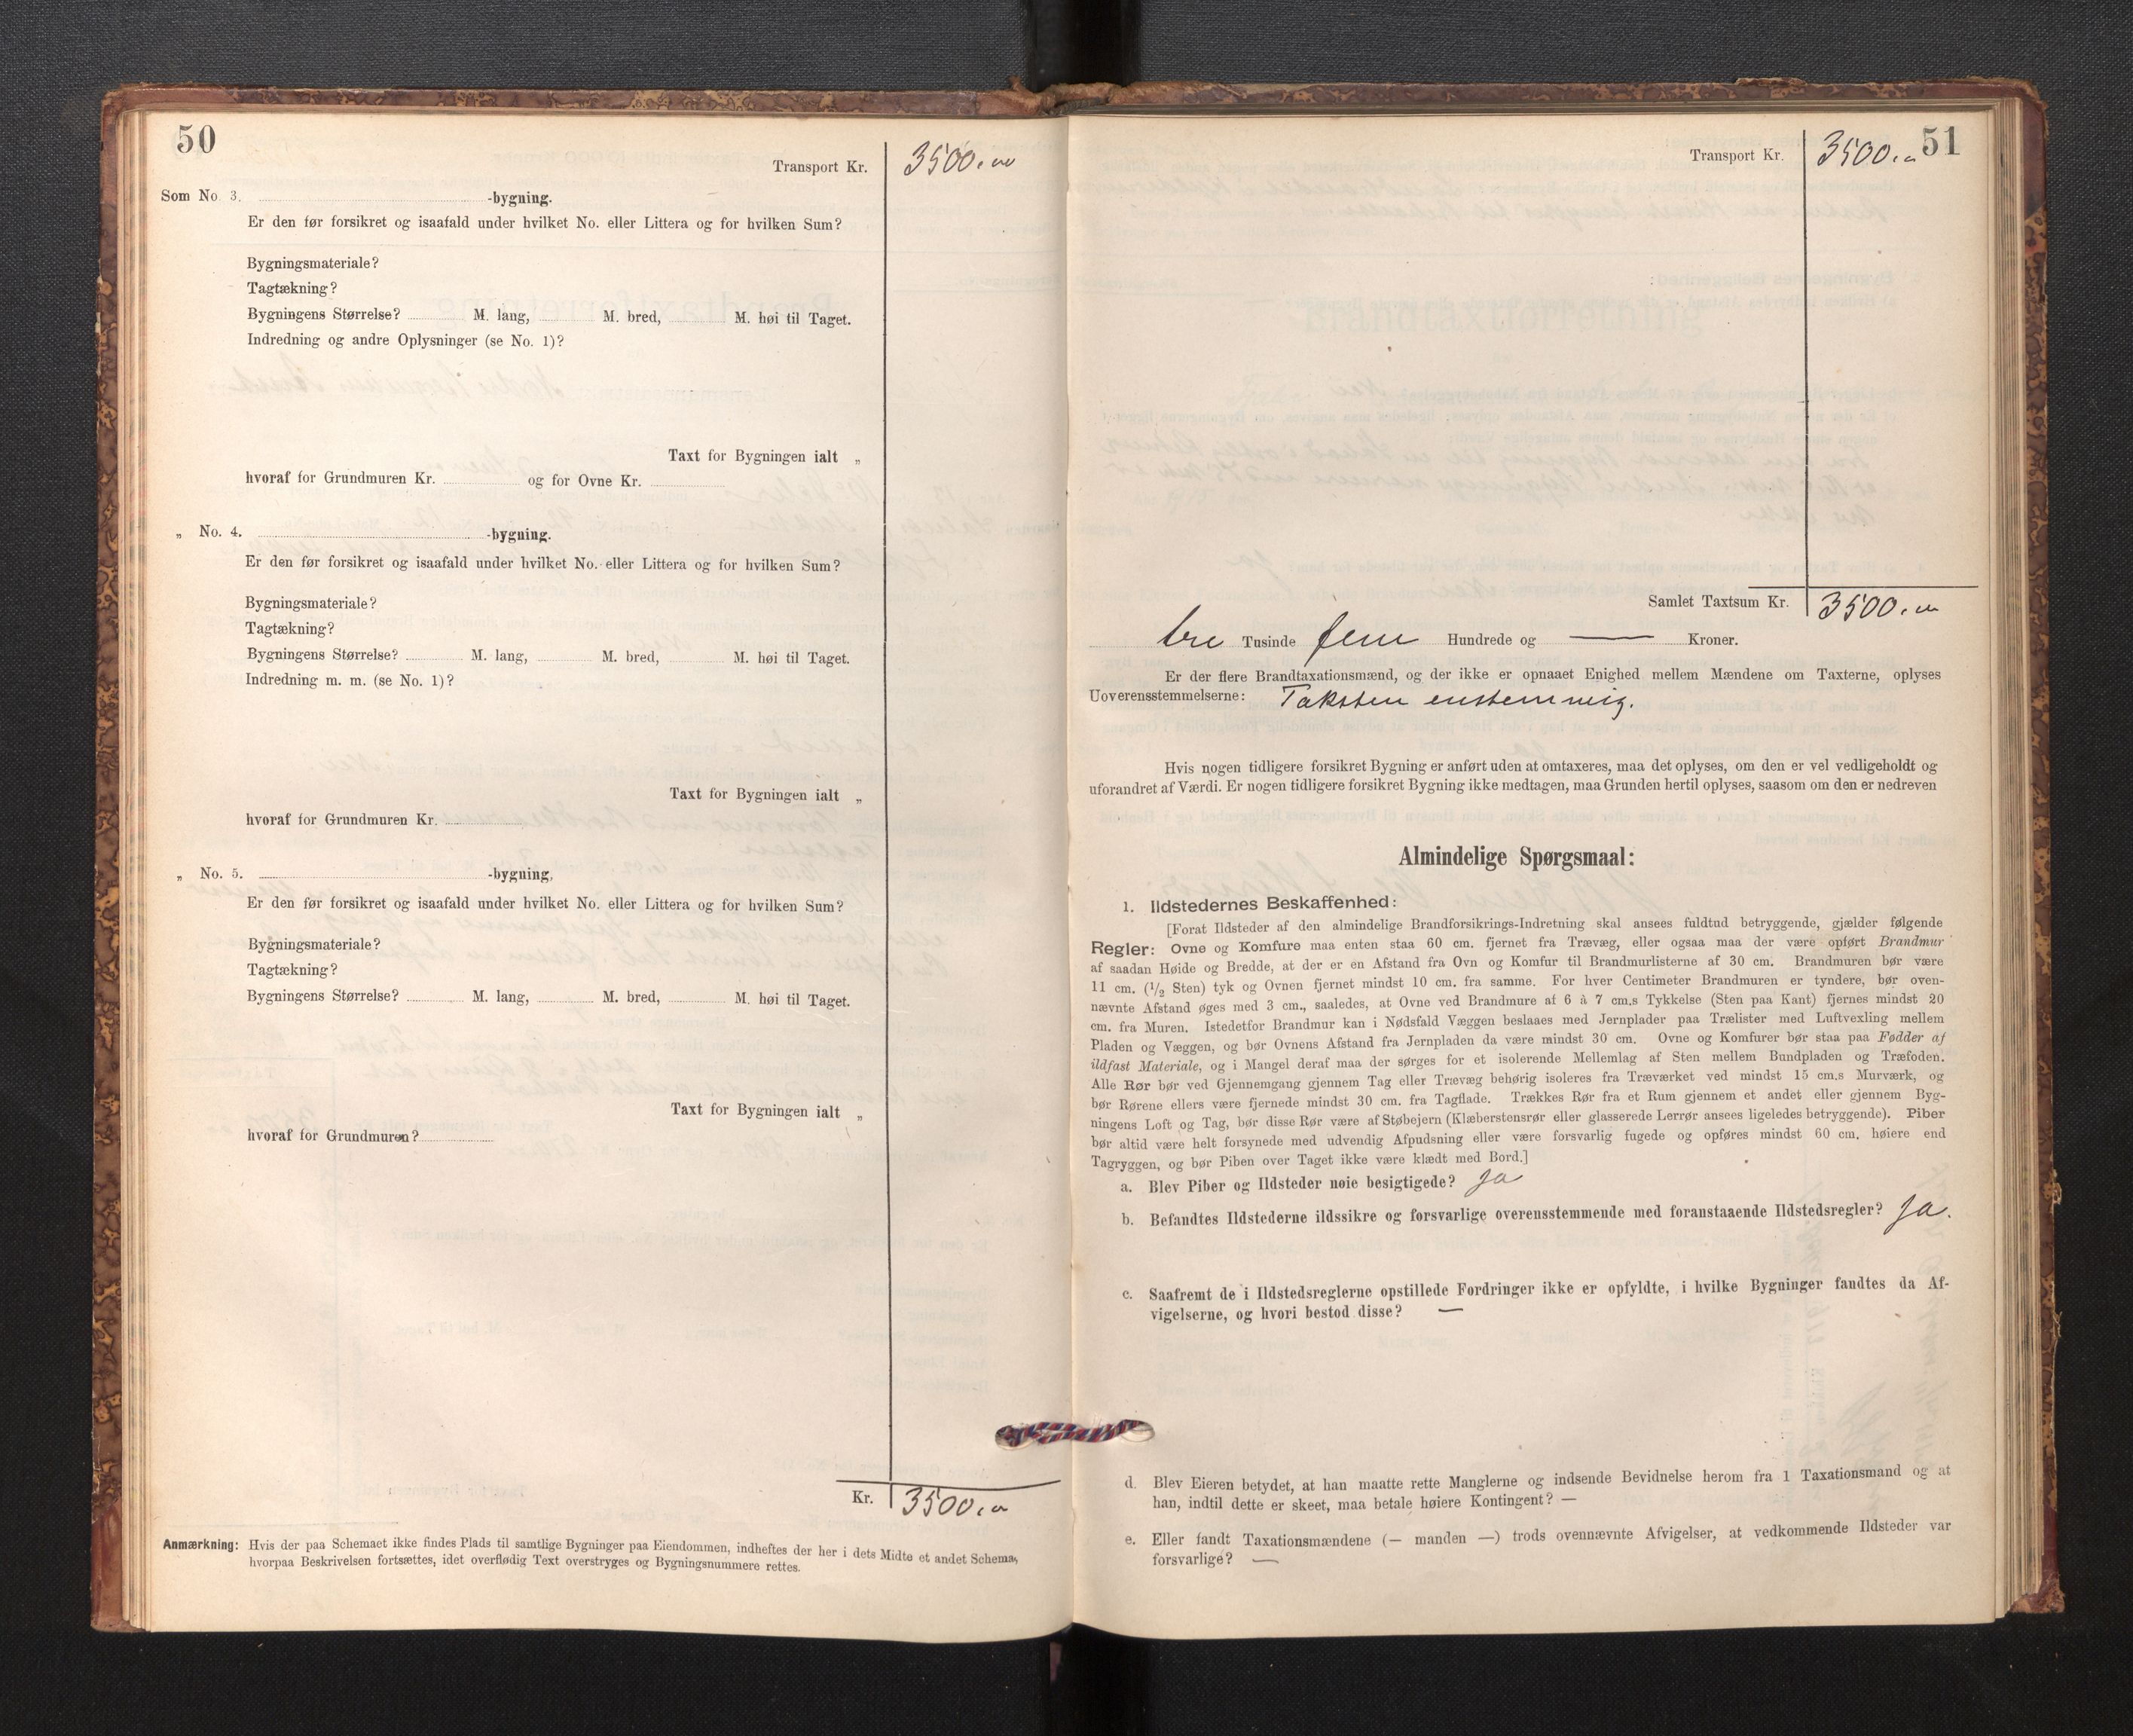 50
Transport Kr. 3500.00
Som No 3. -bygning.
Er den før forsikret og isaafald under hvilket No. eller Littera og for hvilken Sum?
Bygningsmateriale?
Tagtækning?
Bygningens Størrelse? M. lang, M. bred, M. høi til Taget.
Indredning og andre Oplysninger (se No. 1)?
Taxt for Bygningen ialt „
hvoraf for Grundmuren Kr. og for Ovne Kr.
„ No. 4. -bygning.
Er den før forsikret og isaafald under hvilket No. eller Littera og for hvilken Sum?
Bygningsmateriale?
Tagtækning?
Bygningens Størrelse? M. lang, M. bred, M. høi til Taget.
Indredning m. m. (se No. 1)?
Taxt for Bygningen ialt „
hvoraf for Grundmuren Kr.
„ No. 5. -bygning,
Er den før forsikret og isaafald under hvilket No. eller Littera og for hvilken Sum?
Bygningsmateriale?
Tagtækning?
Bygningens Størrelse? M. lang, M. bred, M. høi til Taget.
Taxt for Bygningen ialt „
hvoraf for Grundmuren?
Kr. 3500.00
Anmærkning: Hvis der paa Schemaet ikke findes Plads til samtlige Bygninger paa Eiendommen, indheftes der her i dets Midte et andet Schema,
hvorpaa Beskrivelsen fortsættes, idet overflødig Text overstryges og Bygningsnummere rettes.
51
Transport Kr. 3500.00
Samlet Taxtsum Kr. 3500.00
tre Tusinde fem Hundrede og — Kroner.
Er der flere Brandtaxationsmænd, og der ikke er opnaaet Enighed mellem Mændene om Taxterne, oplyses
Uoverensstemmelserne: Taksten enstemmig.
Hvis nogen tidligere forsikret Bygning er anført uden at omtaxeres, maa det oplyses, om den er vel vedligeholdt og
uforandret af Værdi. Er nogen tidligere forsikret Bygning ikke medtagen, maa Grunden hertil oplyses, saasom om den er nedreven
Almindelige Spørgsmaal:
1. Ildstedernes Beskaffenhed:
[Forat Ildsteder af den almindelige Brandforsikrings-Indretning skal ansees fuldtud betryggende, gjælder følgende
Regler: Ovne og Komfure maa enten staa 60 cm. fjernet fra Trævæg, eller ogsaa maa der være opført Brandmur
af saadan Høide og Bredde, at der er en Afstand fra Ovn og Komfur til Brandmurlisterne af 30 cm. Brandmuren bør være
11 cm. (1/2 Sten) tyk og Ovnen fjernet mindst 10 cm. fra samme. For hver Centimeter Brandmuren er tyndere, bør oven-
nævnte Afstand øges med 3 cm., saaledes, at Ovne ved Brandmure af 6 à 7 cm.s Tykkelse (Sten paa Kant) fjernes mindst 20
cm. fra Muren. Istedetfor Brandmur kan i Nødsfald Væggen beslaaes med Jernplader paa Trælister med Luftvexling mellem
Pladen og Væggen, og bør Ovnens Afstand fra Jernpladen da være mindst 30 cm. Ovne og Komfurer bør staa paa Fødder af
ildfast Materiale, og i Mangel deraf maa der sørges for et isolerende Mellemlag af Sten mellem Bundpladen og Træfoden.
Alle Rør bør ved Gjennemgang gjennem Tag eller Trævæg behørig isoleres fra Træværket ved mindst 15 cm.s Murværk, og
bør Rørene ellers være fjernede mindst 30 cm. fra Tagflade. Trækkes Rør fra et Rum gjennem et andet eller gjennem Byg-
ningens Loft og Tag, bør disse Rør være af Støbejern (Klæberstensrør eller glasserede Lerrør ansees ligeledes betryggende). Piber
bør altid være helt forsynede med udvendig Afpudsning eller være forsvarlig fugede og opføres mindst 60 cm. høiere end
Tagryggen, og bør Piben over Taget ikke være klædt med Bord.]
a. Blev Piber og Ildsteder nøie besigtigede? ja
b. Befandtes Ildstederne ildssikre og forsvarlige overensstemmende med foranstaaende Ildstedsregler? ja.
c. Saafremt de i Ildstedsreglerne opstillede Fordringer ikke er opfyldte, i hvilke Bygninger fandtes da Af-
vigelserne, og hvori bestod disse? —
d. Blev Eieren betydet, at han maatte rette Manglerne og indsende Bevidnelse herom fra 1 Taxationsmand og at
han, indtil dette er skeet, maa betale høiere Kontingent? —
e. Eller fandt Taxationsmændene (— manden —) trods ovennævnte Afvigelser, at vedkommende Ildsteder var
forsvarlige? —